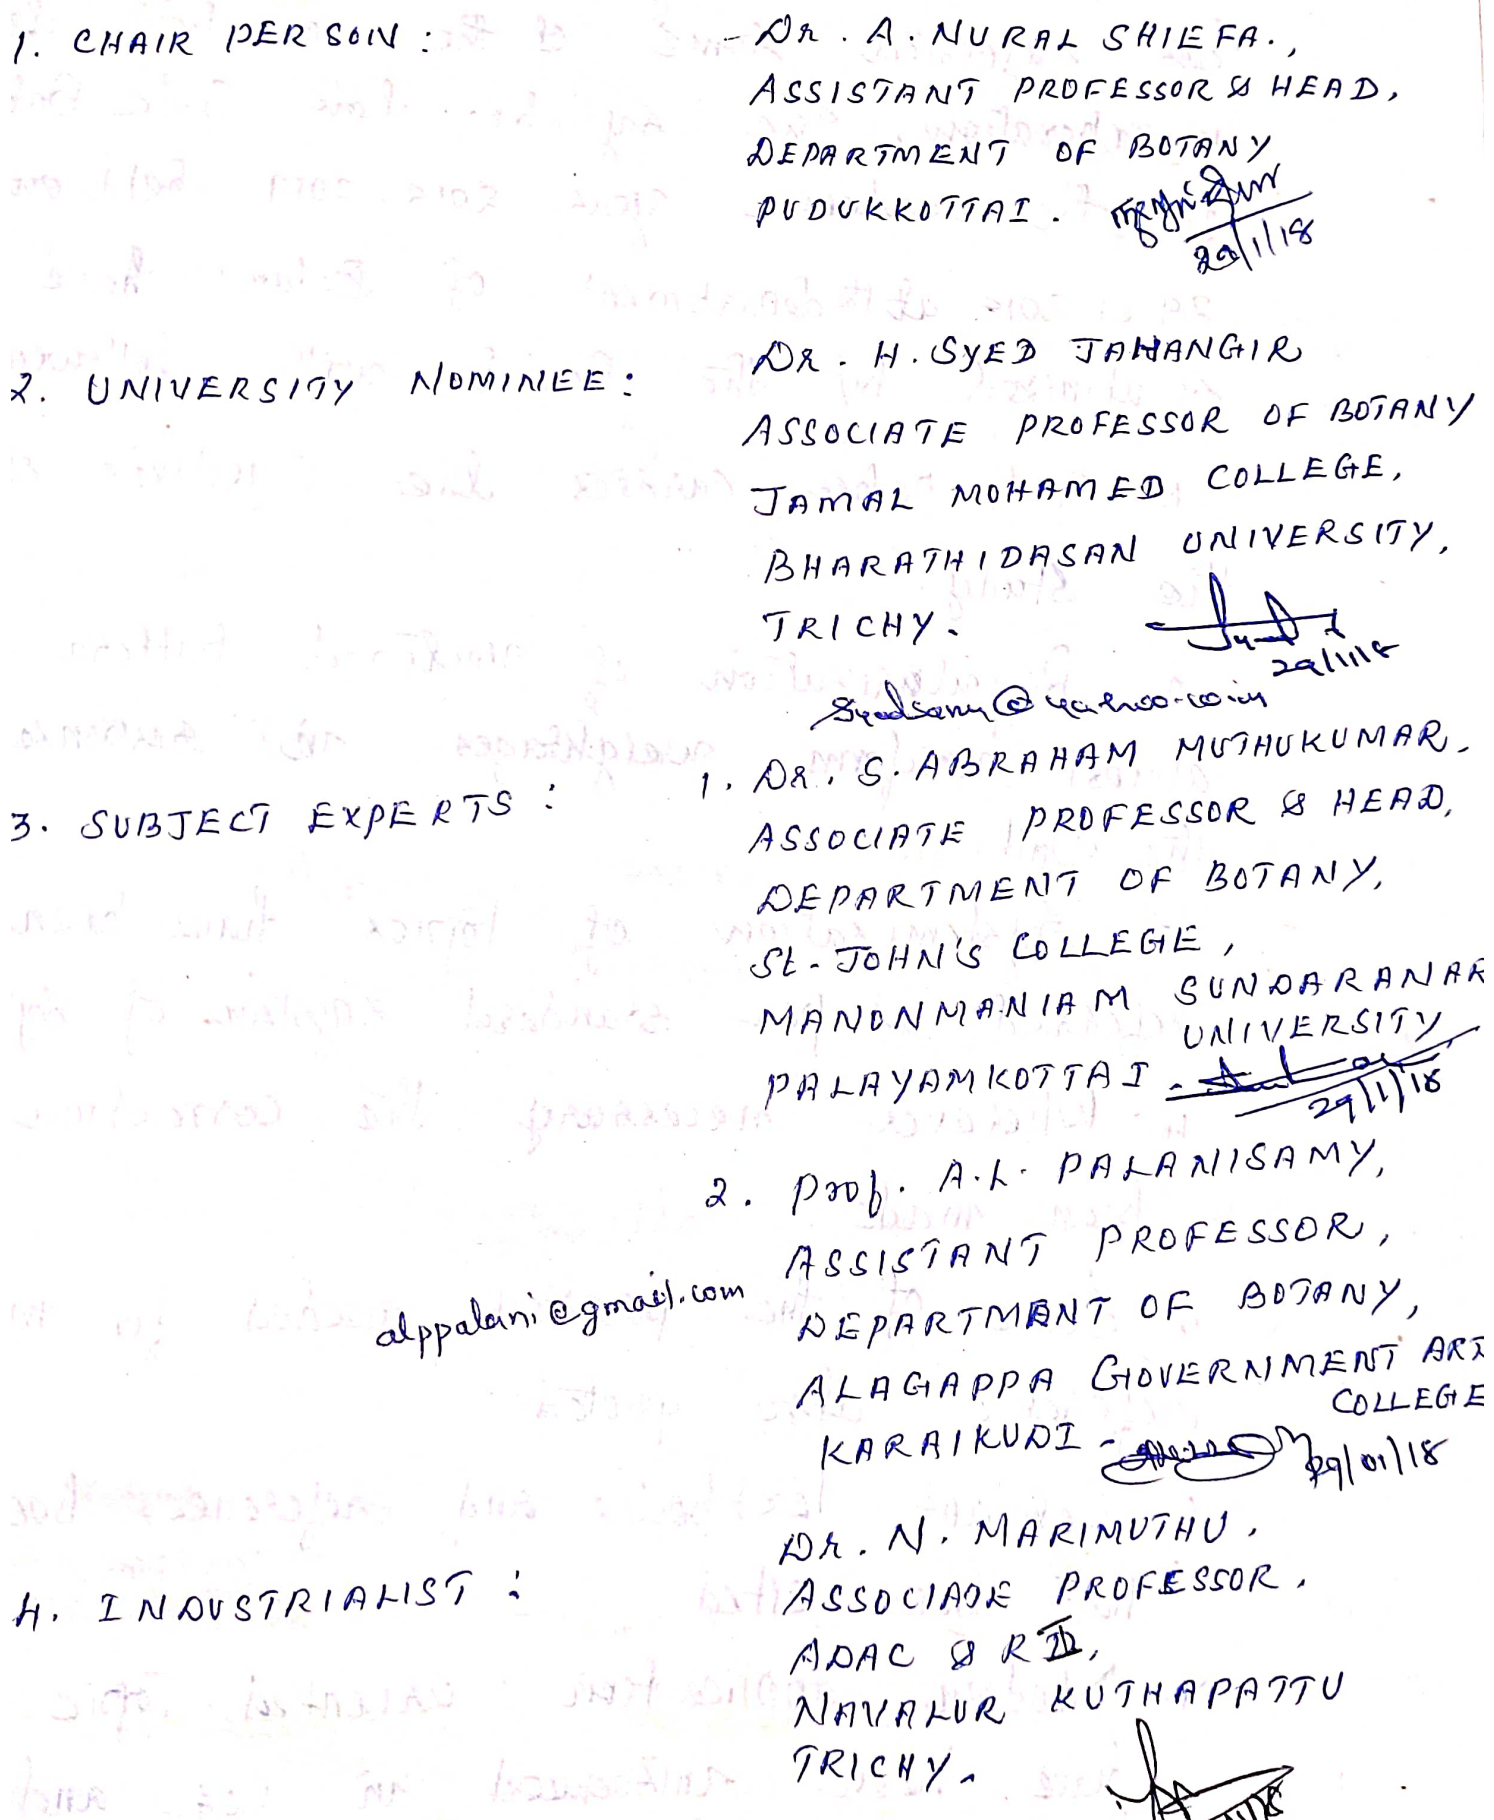 1. CHAIR PERSON :
Dr. A. NURAL SHIEFA.,
ASSISTANT PROFESSOR & HEAD,
DEPARTMENT OF BOTANY
PUDUKKOTTAI.
29/1/18
2. UNIVERSITY NOMINEE :
Dr. H. SYED JAHANGIR
ASSOCIATE PROFESSOR OF BOTANY
JAMAL MOHAMED COLLEGE,
BHARATHIDASAN UNIVERSITY,
TRICHY.
29/1/18
3. SUBJECT EXPERTS :
1. Dr. S. ABRAHAM MUTHUKUMAR.
ASSOCIATE PROFESSOR & HEAD,
DEPARTMENT OF BOTANY,
St. JOHN'S COLLEGE,
MANONMANIAM SUNDARANAR
UNIVERSITY
PALAYAMKOTTAI.
29/1/18
2. Prof. A.L. PALANISAMY,
ASSISTANT PROFESSOR,
alppalani@gmail.com
DEPARTMENT OF BOTANY,
ALAGAPPA GOVERNMENT ART
COLLEGE
KARAIKUDI -
29/01/18
4. INDUSTRIALIST :
Dr. N. MARIMUTHU.
ASSOCIATE PROFESSOR.
ADAC & RI,
NAVALUR KUTHAPATTU
TRICHY.